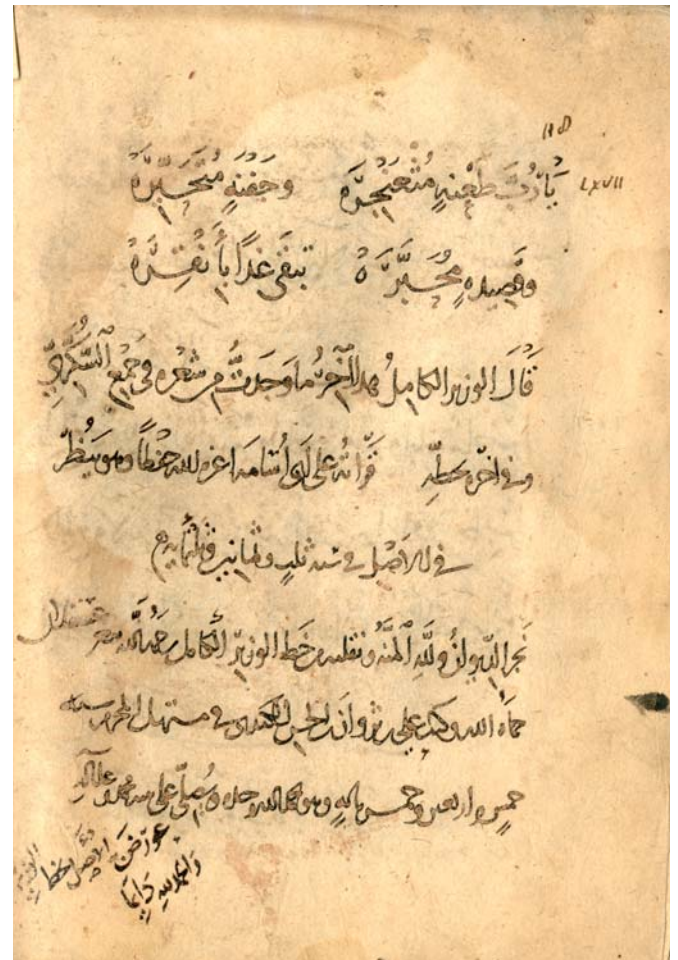 118
LXVII
يَا رُبَّ طَعْنَةٍ مُثْعَنْجِرَهْ وجَفْنَةٍ مُتَحَيِّرَهْ
وقصيدةٍ مُحَبَّرَهْ تبقى غدًا بأَنْقِرَهْ
قَالَ الوزير الكامل هذا آخر ما وجدتُ من شعره في جَمْع السُّكَّرِيّ
وفي آخره بخطه قرأته على أبي أسامة أعزه الله حفظاً وهو ينظر
في الأصل في سنة ثلث وثمانين وثلثمائة
نجز الديوان ولله المنة ونقلته من خط الوزير الكامل رحمه الله
حماه الله وكتب علي بن ثروان بن الحسن الكندي في مستهل المحرم سنة
خمس واربعين وخمس مائة وهو يحمد الله وحده ويصلي على محمد وعلى آله
عورض الأصل بخط الوزير
والحمد لله دايما